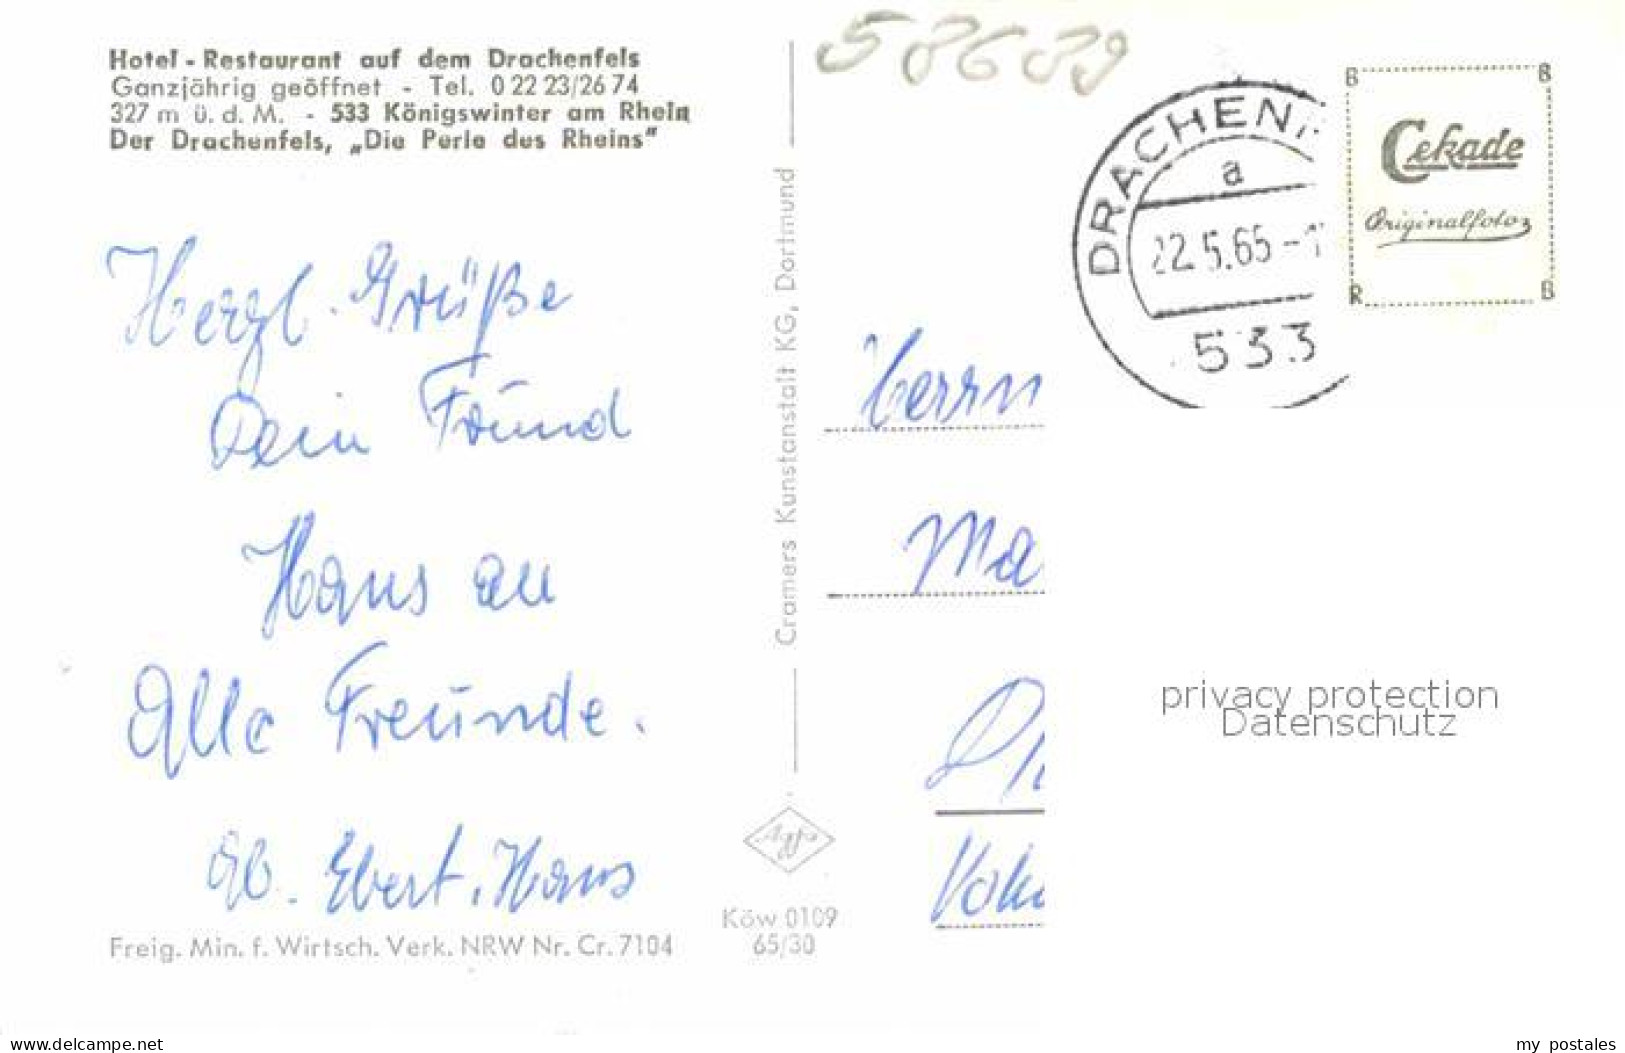 Hotel - Restaurant auf dem Drachenfels
Ganzjährig geöffnet - Tel. 0 22 23/26 74
327 m ü. d. M. - 533 Königswinter am Rhein
Der Drachenfels, „Die Perle des Rheins"
Herzl. Grüße
Dein Freund
Hans an
Alle Freunde.
Ebert, Hans
Freig. Min. f. Wirtsch. Verk. NRW Nr. Cr. 7104
Cramers Kunstanstalt KG, Dortmund
Agfa
Köw 0109
65/30
58689
DRACHENF
a
22.5.65-1
533
B B
Cekade
Originalfoto
R B
Herrn
Ma
privacy protection
Datenschutz
delcampe.net
my postales